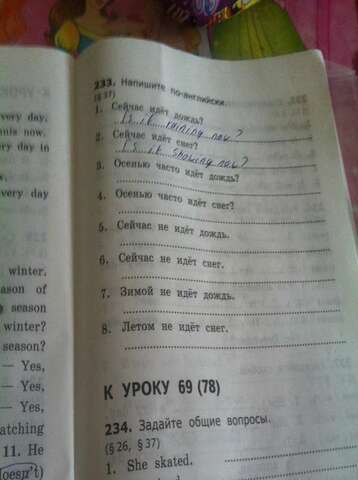 К УРОК
233. Напишите по-английски.
(§ 37)
1. Сейчас идёт дождь?
Is it raining now?
2. Сейчас идёт снег?
Is it snowing now?
3. Осенью часто идёт дождь?
4. Осенью часто идёт снег?
5. Сейчас не идёт дождь.
6. Сейчас не идёт снег.
7. Зимой не идёт дождь.
8. Летом не идёт снег.
К УРОКУ 69 (78)
234. Задайте общие вопросы.
(§ 26, § 37)
1. She skated.
very day.
now.
ery day in
very day
winter.
ason of
season
winter?
season?
— Yes,
— Yes,
— Yes,
atching
11. He
oesn't)